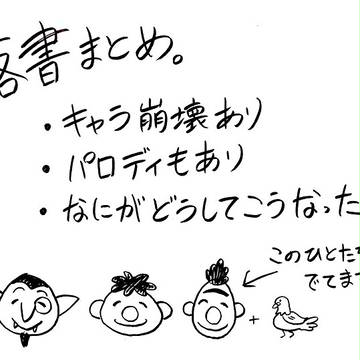 落書まとめ。
・キャラ崩壊あり
・パロディもあり
・なにがどうしてこうなった
このひとた
でてま
+